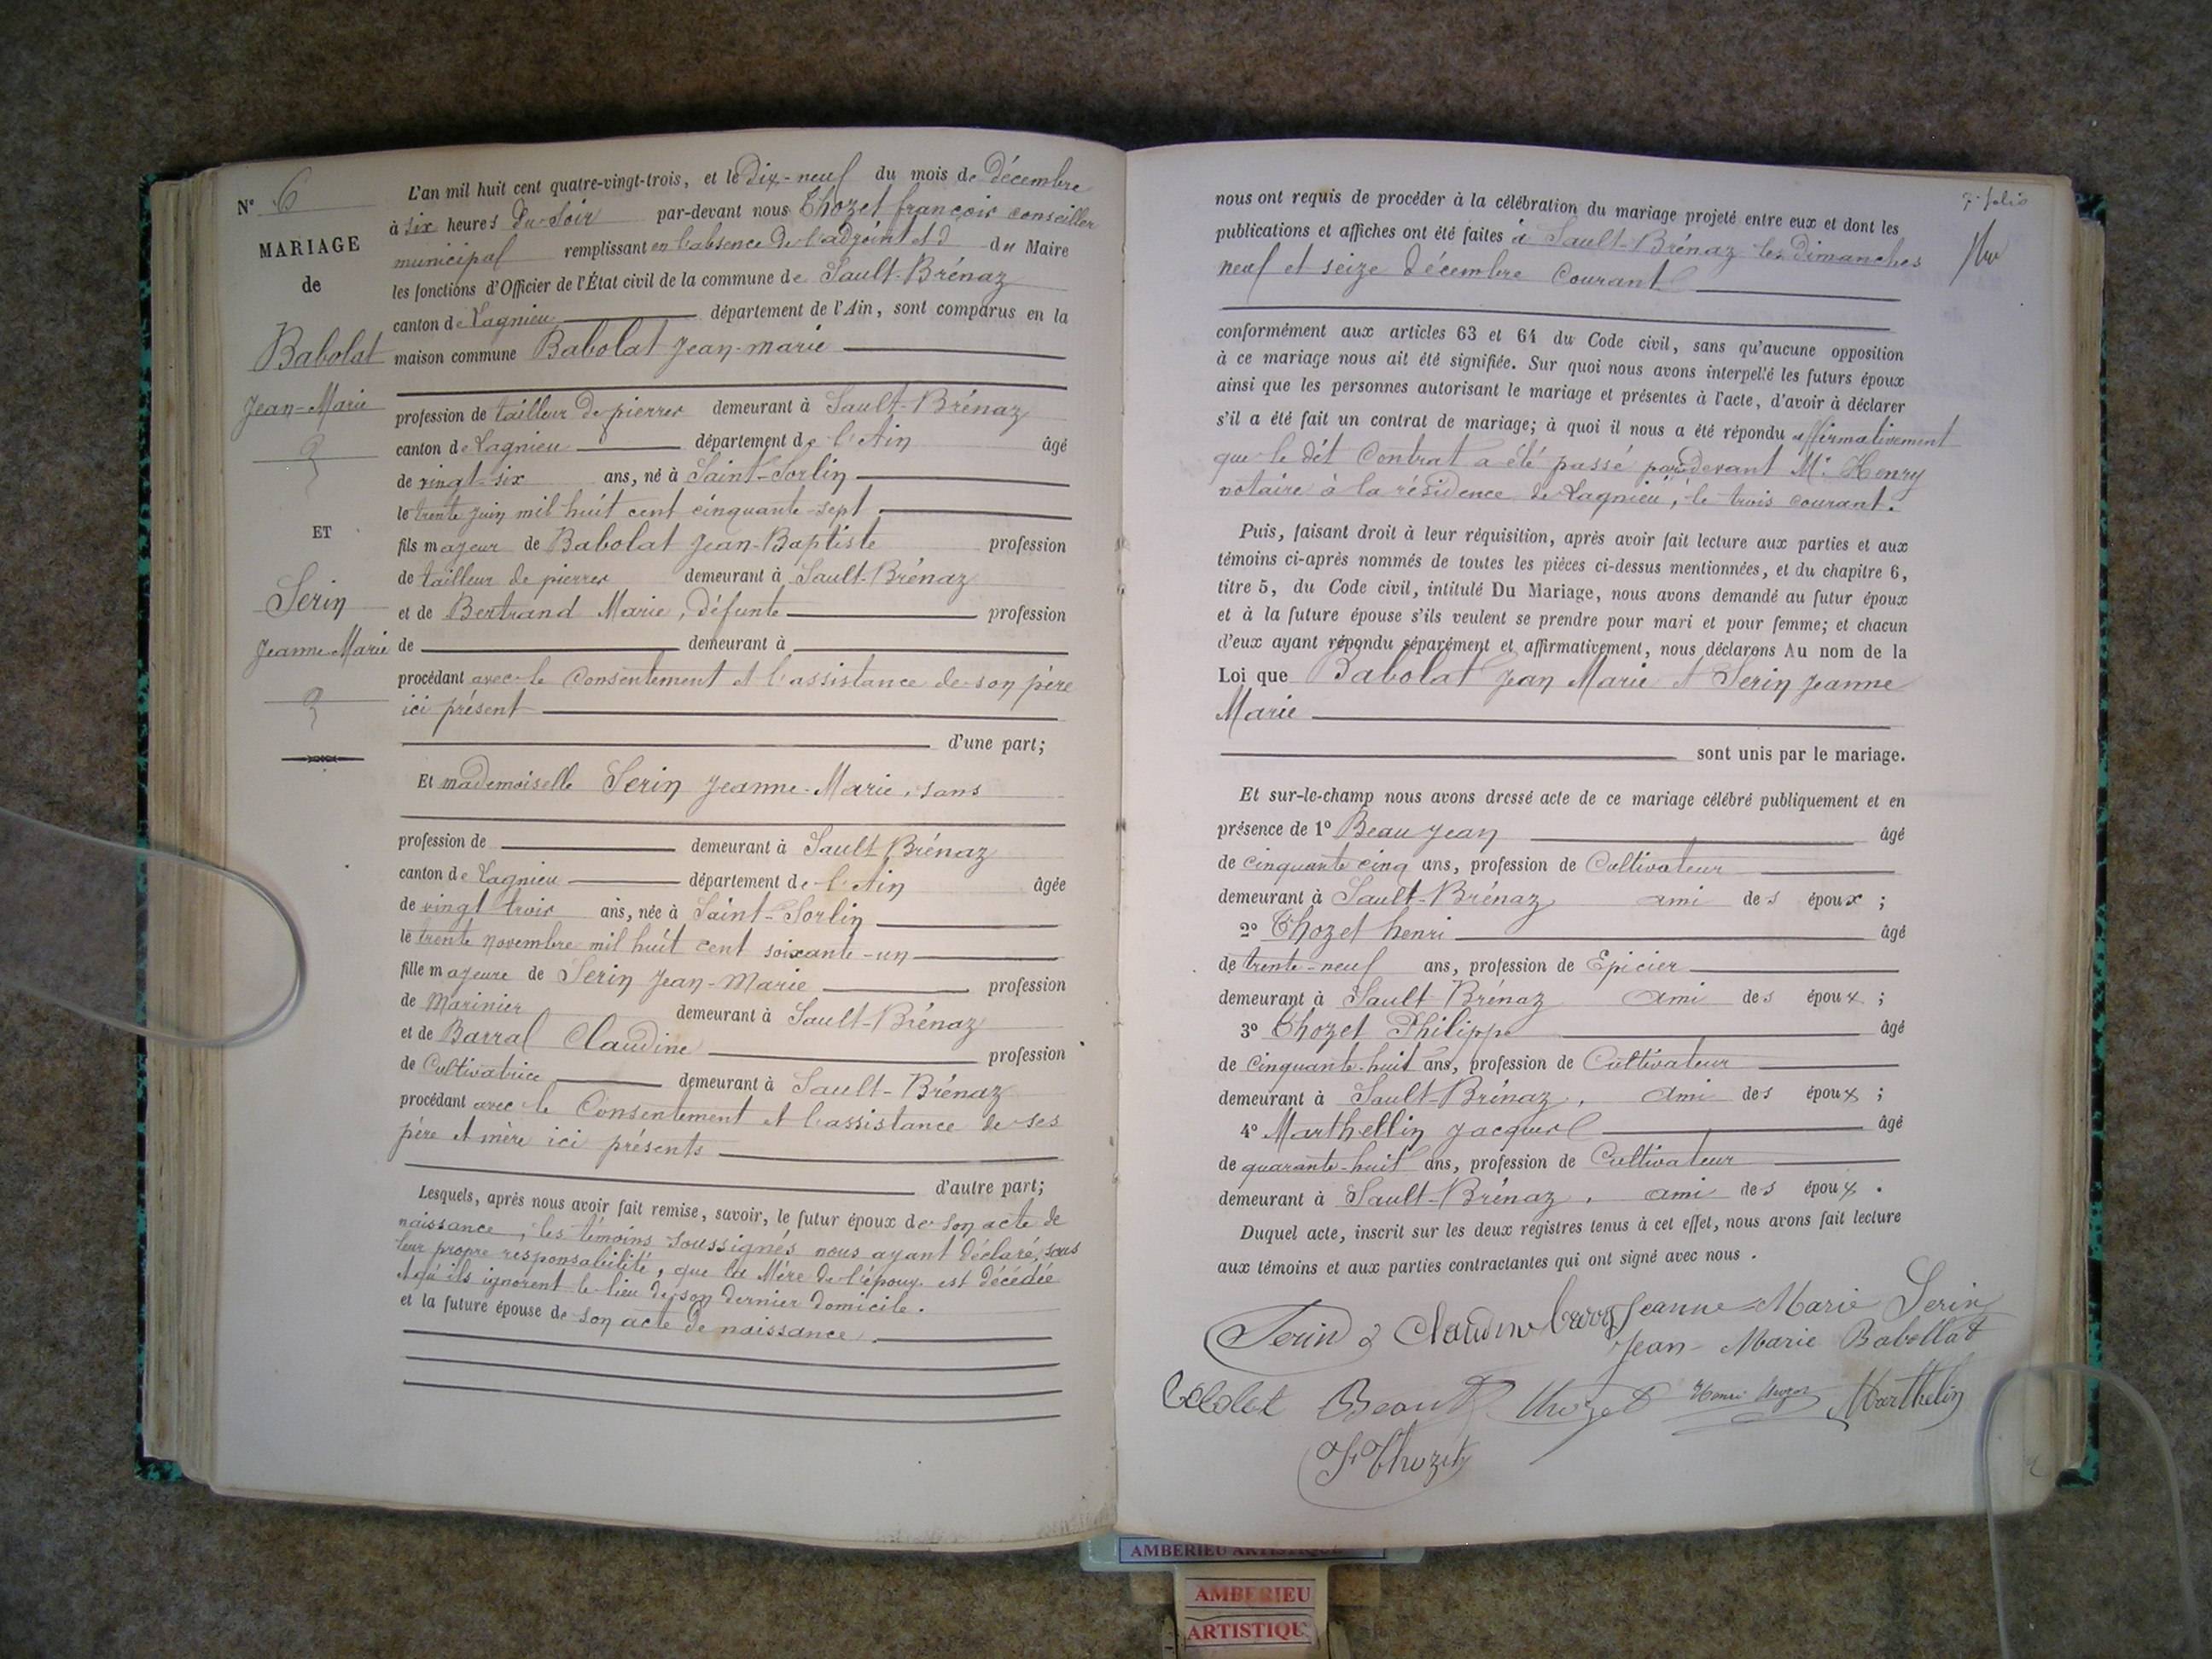 N° 6
MARIAGE
de
Babolat
Jean-Marie
ET
Serin
Jeanne-Marie
L'an mil huit cent quatre-vingt-trois, et le Dix-neuf du mois de Décembre
à six heures du soir par-devant nous Thozet françois conseiller
municipal remplissant en l'absence de l'adjoint et d du Maire
les fonctions d'Officier de l'État civil de la commune de Sault-Brénaz
canton de Lagnieu département de l'Ain, sont comparus en la
maison commune Babolat Jean-marie
profession de tailleur de pierres demeurant à Sault-Brénaz
canton de Lagnieu département de l'Ain âgé
de vingt-six ans, né à Saint-Sorlin
le trente juin mil huit cent cinquante-sept
fils majeur de Babolat Jean-Baptiste profession
de tailleur de pierres demeurant à Sault-Brénaz
et de Bertrand Marie, défunte profession
de demeurant à
procédant avec le Consentement et l'assistance de son père
ici présent
d'une part;
Et mademoiselle Serin Jeanne-Marie, sans
profession de demeurant à Sault-Brénaz
canton de Lagnieu département de l'Ain âgée
de vingt trois ans, née à Saint-Sorlin
le trente novembre mil huit cent soixante-un
fille majeure de Serin Jean-Marie profession
de Marinier demeurant à Sault-Brénaz
et de Barral Claudine profession
de Cultivatrice demeurant à Sault-Brénaz
procédant avec le Consentement et l'assistance de ses
père et mère ici présents
d'autre part;
Lesquels, après nous avoir fait remise, savoir, le futur époux de son acte de
naissance, les témoins soussignés nous ayant déclaré, sous
leur propre responsabilité, que la Mère de l'époux est décédée
et qu'ils ignorent le lieu de son dernier domicile.
et la future épouse de son acte de naissance.
7e folio
nous ont requis de procéder à la célébration du mariage projeté entre eux et dont les
publications et affiches ont été faites à Sault-Brénaz les Dimanches
neuf et seize Décembre Courant
conformément aux articles 63 et 64 du Code civil, sans qu'aucune opposition
à ce mariage nous ait été signifiée. Sur quoi nous avons interpellé les futurs époux
ainsi que les personnes autorisant le mariage et présentes à l'acte, d'avoir à déclarer
s'il a été fait un contrat de mariage; à quoi il nous a été répondu affirmativement
que le dit Contrat a été passé pardevant Me Henry
notaire à la résidence de Lagnieu, le trois courant.
Puis, faisant droit à leur réquisition, après avoir fait lecture aux parties et aux
témoins ci-après nommés de toutes les pièces ci-dessus mentionnées, et du chapitre 6,
titre 5, du Code civil, intitulé Du Mariage, nous avons demandé au futur époux
et à la future épouse s'ils veulent se prendre pour mari et pour femme; et chacun
d'eux ayant répondu séparément et affirmativement, nous déclarons Au nom de la
Loi que Babolat Jean Marie et Serin Jeanne
Marie
sont unis par le mariage.
Et sur-le-champ nous avons dressé acte de ce mariage célébré publiquement et en
présence de 1° Beau Jean âgé
de cinquante cinq ans, profession de Cultivateur
demeurant à Sault-Brénaz ami des époux ;
2° Thozet henri âgé
de trente-neuf ans, profession de Epicier
demeurant à Sault Brénaz ami des époux ;
3° Thozet Philippe âgé
de Cinquante-huit ans, profession de Cultivateur
demeurant à Sault-Brénaz, ami des époux ;
4° Marthellin Jacques âgé
de quarante-huit ans, profession de Cultivateur
demeurant à Sault-Brénaz, ami des époux .
Duquel acte, inscrit sur les deux registres tenus à cet effet, nous avons fait lecture
aux témoins et aux parties contractantes qui ont signé avec nous .
Serin Claudine Jeanne-Marie Serin
Jean-Marie Babollat
Beau Thozet Henri Thozet Marthelin
F Thozet
AMBERIEU ARTISTIQUE
AMBERIEU
ARTISTIQU